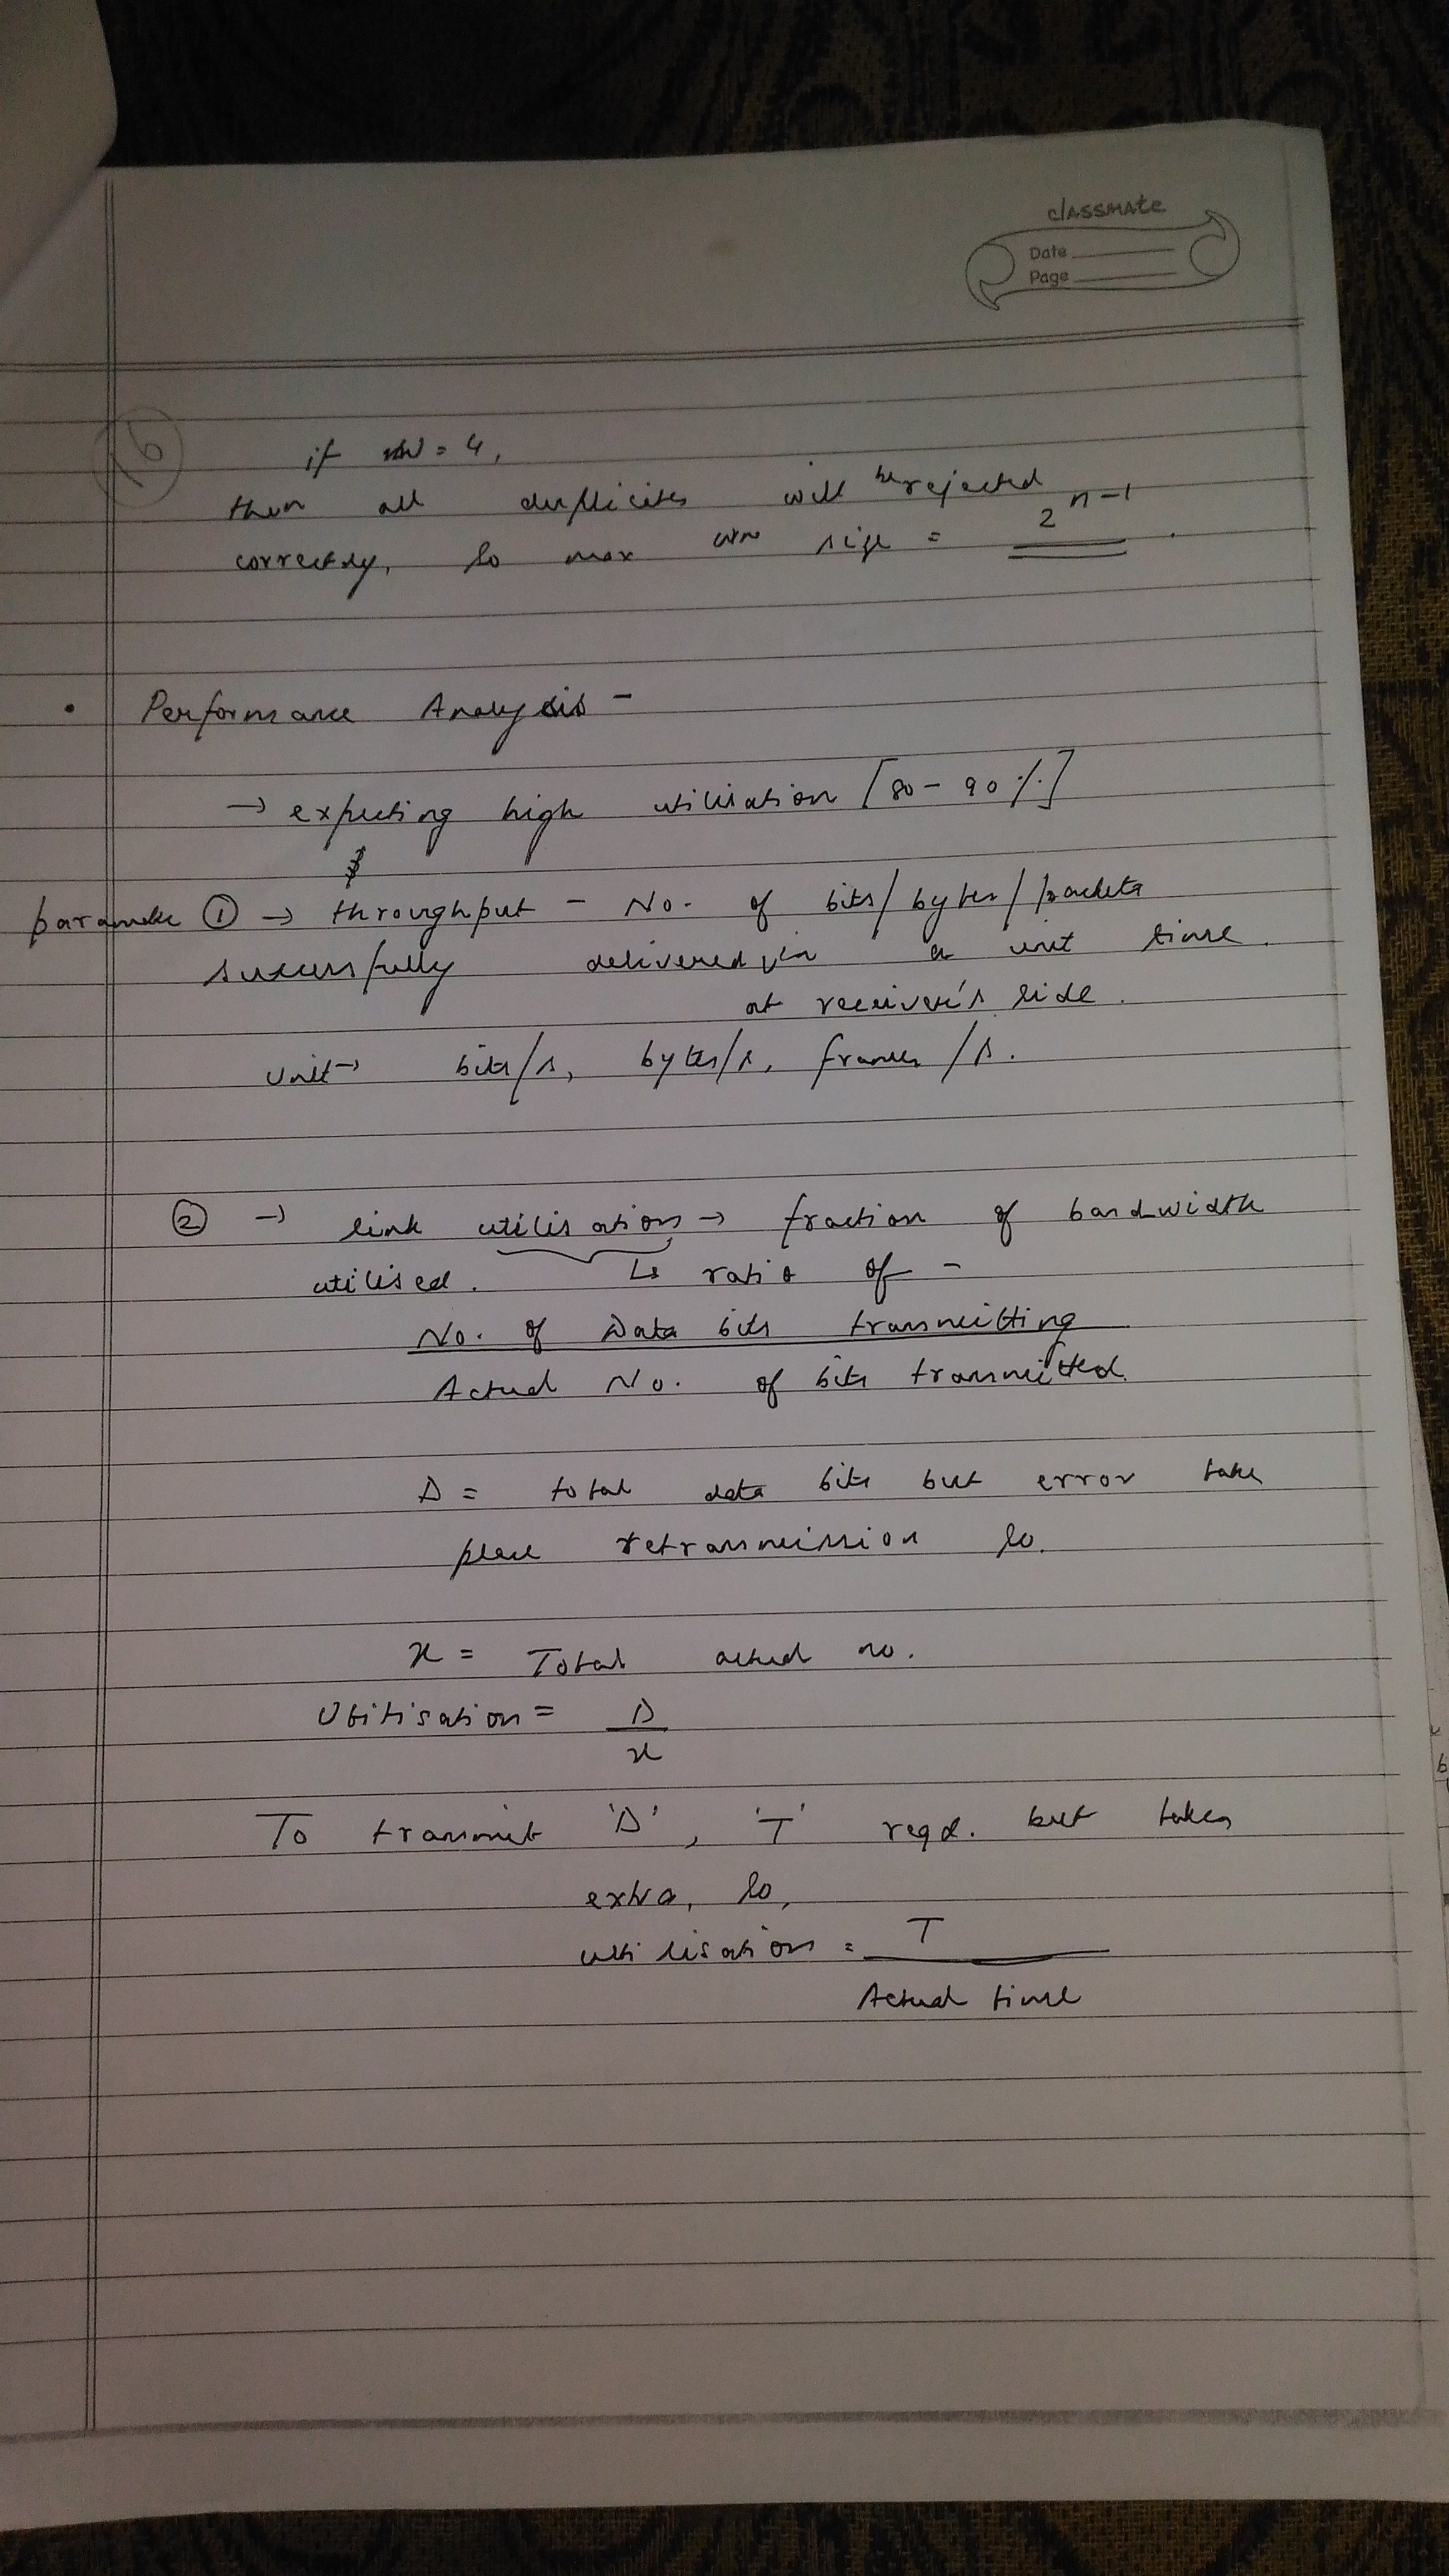 classmate
Date
Page
16
if w = 4,
then all duplicates will be rejected
correctly, so max win size = 2^n-1.
• Performance Analysis -
→ expecting high utilisation [80 - 90%]
parameter ① → throughput - No. of bits/bytes/packets
successfully delivered in a unit time.
at receiver's side.
Unit → bits/s, bytes/s, frames/s.
② → link utilisation → fraction of bandwidth
utilised. ↳ ratio of -
No. of Data bits transmitting
Actual No. of bits transmitted.
D = total data bits but error take
place retransmission so.
x = Total actual no.
Utilisation = D
x
To transmit 'D', 'T' reqd. but takes
extra, so,
utilisation = T
Actual time